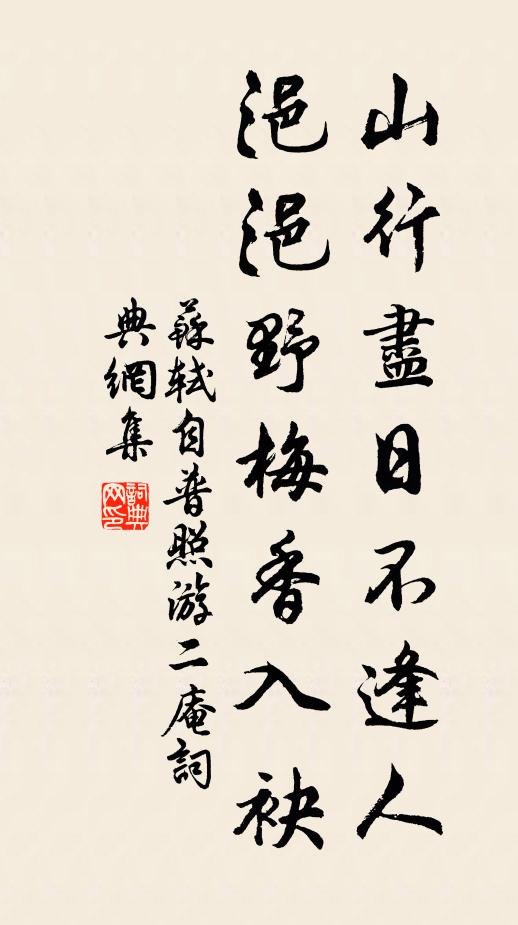 山行盡日不逢人
浥浥野梅香入袂
蘇軾自普照游二庵詞
典網集
詞典
网印